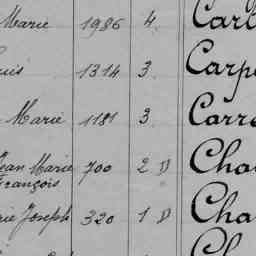 Marie 1986 4. Carl
uis 1314 3. Carpe
Marie 1181 3 Carre
Jean Marie 700 2 D Cha
François
rie Joseph 320 1 D Cha